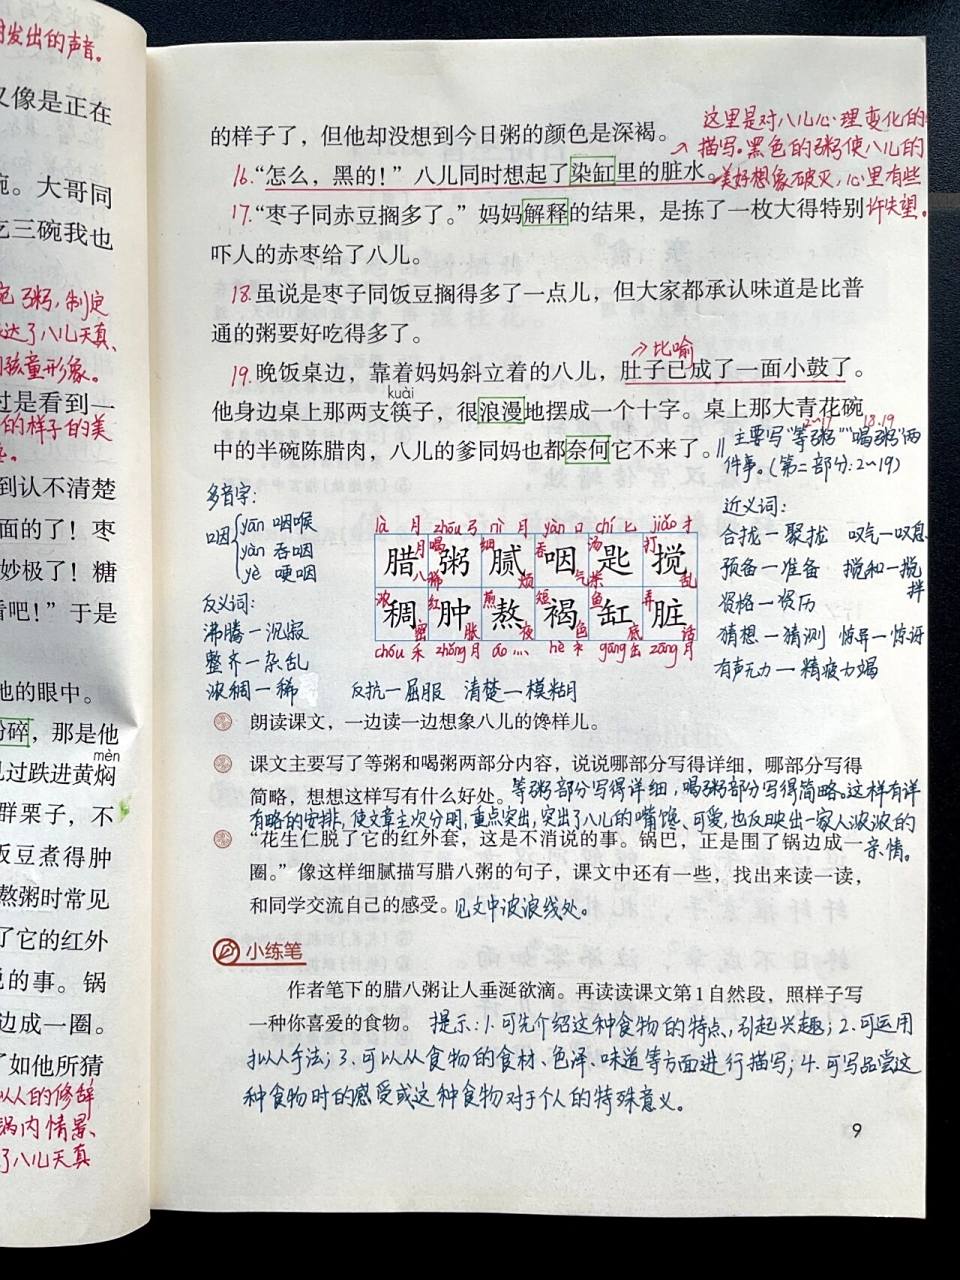 时发出的声音。
又像是正在
碗。大哥同
吃三碗我也
碗粥,制定
达了八儿天真、
孩童形象。
过是看到一
的样子的美
到认不清楚
面的了！枣
妙极了！糖
看吧！”于是
他的眼中。
粉碎，那是他
mèn
见过跌进黄焖
群栗子，不
饭豆煮得肿
熬粥时常见
了它的红外
说的事。锅
边成一圈。
了如他所猜
拟人的修辞
锅内情景、
了八儿天真
的样子了，但他却没想到今日粥的颜色是深褐。
这里是对八儿心理变化的
描写。黑色的粥使八儿的
美好想象破灭,心里有些
许失望。
16.“怎么，黑的！”八儿同时想起了染缸里的脏水。
17.“枣子同赤豆搁多了。”妈妈解释的结果，是拣了一枚大得特别
吓人的赤枣给了八儿。
18.虽说是枣子同饭豆搁得多了一点儿，但大家都承认味道是比普
通的粥要好吃得多了。
比喻
19.晚饭桌边，靠着妈妈斜立着的八儿，肚子已成了一面小鼓了。
kuài
他身边桌上那两支筷子，很浪漫地摆成一个十字。桌上那大青花碗
中的半碗陈腊肉，八儿的爹同妈也都奈何它不来了。
2~17 18.19
‖主要写“等粥”“喝粥”两
件事。(第二部分:2~19)
多音字:
咽 yān 咽喉
yàn 吞咽
yè 哽咽
反义词:
沸腾—沉寂
整齐—杂乱
浓稠—稀
反抗—屈服 清楚—模糊
là 月 zhōu 弓 nì 月 yàn 口 chí 匕 jiǎo 扌
腊 粥 腻 咽 匙 搅
月 喝 细 吞 汤 打
八 稀 烦 气 米 乱
稠 肿 熬 褐 缸 脏
浓 红 煎 短 鱼 弄
密 胀 夜 色 底 话
chóu 禾 zhǒng 月 áo 灬 hè 衤 gāng 缶 zāng 月
近义词:
合拢—聚拢 叹气—叹息
预备—准备 搅和—搅拌
资格—资历
猜想—猜测 惊异—惊讶
有声无力—精疲力竭
朗读课文，一边读一边想象八儿的馋样儿。
课文主要写了等粥和喝粥两部分内容，说说哪部分写得详细，哪部分写得
简略，想想这样写有什么好处。等粥部分写得详细,喝粥部分写得简略。这样有详
有略的安排,使文章主次分明,重点突出,突出了八儿的嘴馋、可爱,也反映出一家人浓浓的
亲情。
“花生仁脱了它的红外套，这是不消说的事。锅巴，正是围了锅边成一
圈。”像这样细腻描写腊八粥的句子，课文中还有一些，找出来读一读，
和同学交流自己的感受。见文中波浪线处。
小练笔
作者笔下的腊八粥让人垂涎欲滴。再读读课文第1自然段，照样子写
一种你喜爱的食物。 提示:1.可先介绍这种食物的特点,引起兴趣;2.可运用
拟人手法;3.可以从食物的食材、色泽、味道等方面进行描写;4.可写品尝这
种食物时的感受或这种食物对于个人的特殊意义。
9